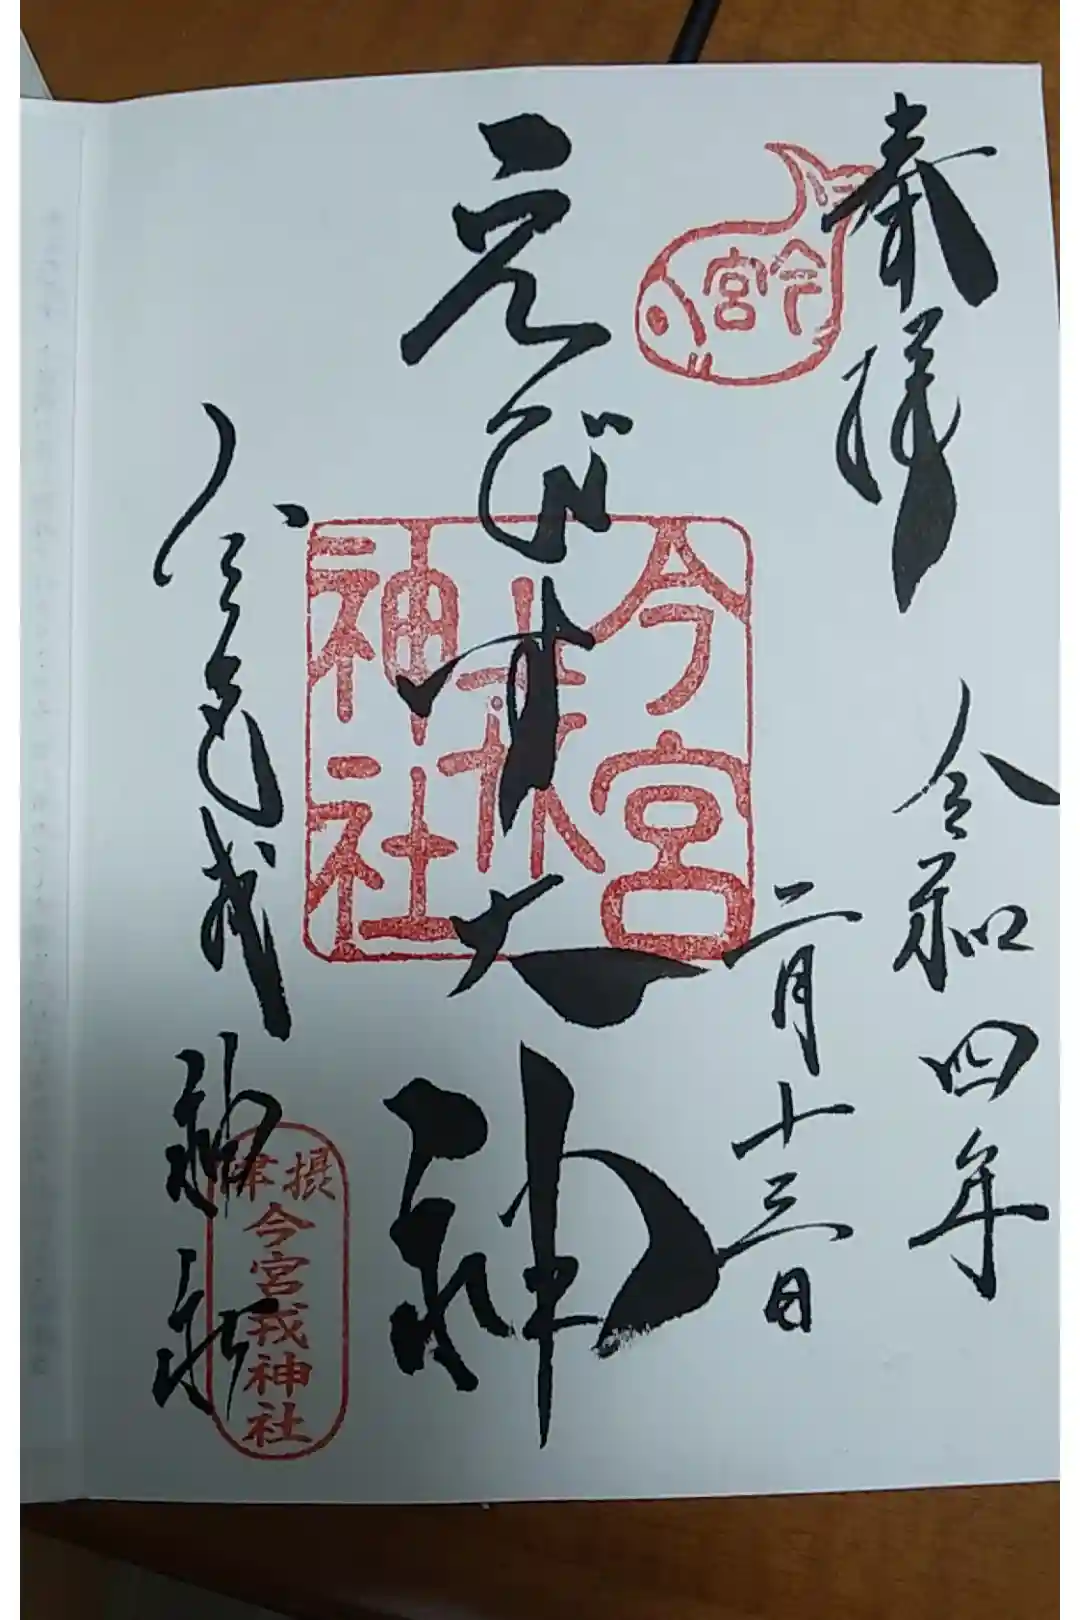 奉拝
令和四年
二月十三日
今宮
えびす大神
今宮
戎
神社
今宮戎神社
摂津
今宮戎神社